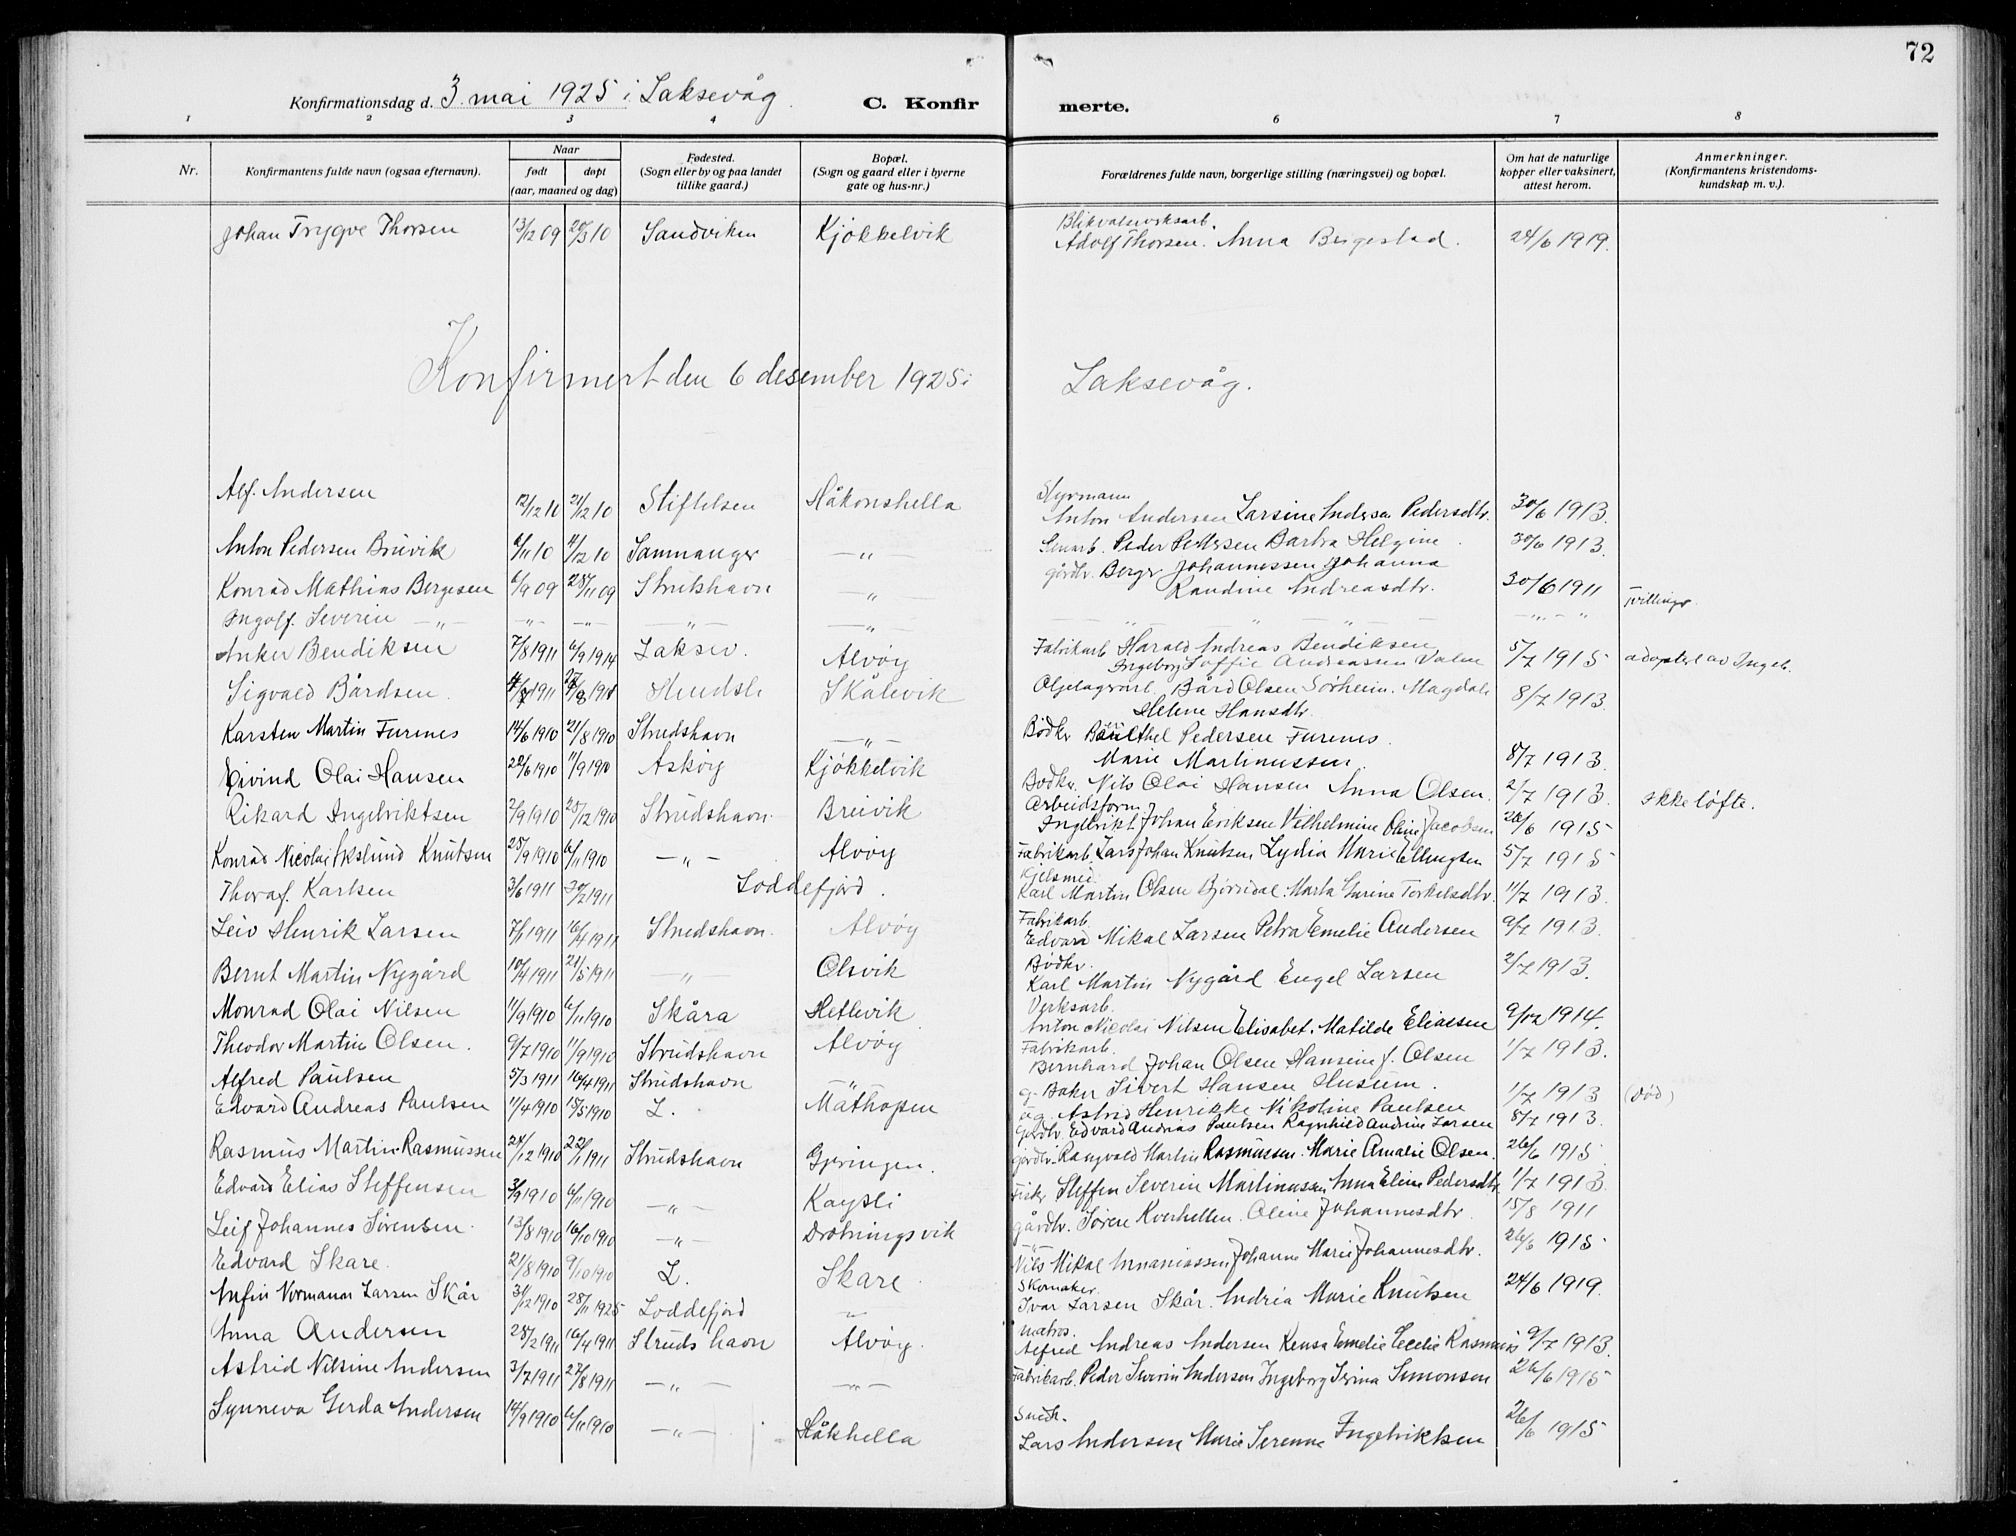 72
Konfirmationsdag d. 3. mai 1925 i Laksevåg. C. Konfir merte.
1 2 3 4 6 7 8
Nr. Konfirmantens fulde navn (ogsaa efternavn). Naar født døpt (aar, maaned og dag) Fødested. (Sogn eller by og paa landet tillike gaard.) Bopæl. (Sogn og gaard eller i byerne gate og hus-nr.) Forældrenes fulde navn, borgerlige stilling (næringsvei) og bopæl. Om hat de naturlige kopper eller vaksinert, attest herom. Anmerkninger. (Konfirmantens kristendoms-kundskap m. v.).
Johan Trygve Thorsen 13/12 09 20/3 10 Sandviken Kjøkkelvik Blikvalseverksarb. Adolf Thorsen. Anna Bergestad. 24/6 1919.
Konfirmert den 6 desember 1925 i Laksevåg.
Alf. Andersen 12/12 10 21/12 10 Stiftelsen Håkonshella Styrmann Anton Andersen Larsine Andersen Pedersdtr. 30/6 1913.
Anton Pedersen Bruvik 6/11 10 11/12 10 Sammanger —"— Peder Pettersen Barbra Helgine. 30/6 1913.
Konrad Mathias Bergesen 6/9 09 28/11 09 Strutshavn —"— gårdbr. Berge Johannessen Johanna Randine Andreasdtr. 30/6 1911 Tvillinger.
Ingolf. Severin —"— —"— —"— —"— —"— —"—
Anker Bendiksen 7/8 1911 6/9 1914 Laksev. Alvøy Fabrikarb. Harald Andreas Bendiksen Ingeborg Soffie Andreassen 5/7 1915 adoptert av Ingeb.
Sigvald Bårdsen. 1911 Skålevik Bård Olsen Sørheim. Magdali Helene Hansdtr. 8/7 1913.
Karsten Martin Furenes 14/6 1910 21/8 1910 Strudshavn —"— Bødkr. Pedersen Furenes. Marie Martinussen. 8/7 1913.
Eivind Olai Hansen 22/6 1910 11/9 1910 Askøy Kjøkkelvik Bødkr. Nils Olai Hansen Anna Olsen. 2/7 1913. ikke løfte.
Rikard Ingebriktsen 2/9 1910 25/12 1910 Strudshavn. Breivik Arbeidsform. Ingebrikt Johan Eriksen Vilhelmine Oline Jacobsen 26/6 1915
Konrad Nicolai Knutsen 25/9 1910 6/11 1910 —"— Alvøy Fabrikarb. Lars Johan Knutsen Lydia Marie Ellingsen 5/7 1915
Thoraf. Karlsen 3/6 1911 30/7 1911 Loddefjord. Karl Martin Olsen Bjørndal. Marta Surine Torkelsdtr. 11/7 1913.
Leiv Henrik Larsen 7/1 1911 16/4 1911 Strudshavn. Alvøy Fabrikarb. Edvard Mikal Larsen Petra Emelie Andersen 9/7 1913.
Bernt Martin Nygård 10/4 1911 21/5 1911 —"— Olsvik Bødkr. Karl Martin Nygård Engel Larsen 2/7 1913.
Monrad Olai Nilsen 11/9 1910 6/11 1910 Skåra Hetlevik Verksarb. Anton Nicolai Nilsen Elisabet. Matilde Eliassen 9/12 1914.
Theodor Martin Olsen. 9/7 1910 11/9 1910 Strudshavn Alvøy Fabrikarb. Bernhard Johan Olsen Hansine f. Olsen 1/7 1913.
Alfred Paulsen 5/3 1911 16/4 1911 Strudshavn —"— g. Baker Sivert Hansen Husum. ug. Astrid Henrikke Nikoline Paulsen 1/7 1913 (død)
Edvard Andreas Paulsen 11/4 1910 15/5 1910 L. Mathopen Gårdbr. Edvard Andreas Paulsen Ragnhild Andrine Larsen 8/7 1913.
Rasmus Martin Rasmussen 24/12 1910 22/1 1911 Strudshavn Gjeringen. gårdbr. Rangvald Martin Rasmussen. Marie Amalie Olsen. 26/6 1915.
Edvard Elias Steffensen 3/9 1910 6/11 1910 —"— Kaysli Fisker Steffen Severin Martinussen Anna Eline Pedersdtr. 1/7 1913.
Leif Johannes Sørensen. 13/8 1910 16/10 1910 —"— Drotningsvik gårdbr. Søren Kverhellen. Oline Johannesdtr. 15/8 1911
Edvard Skare. 21/8 1910 9/10 1910 L. Skare. Nils Mikal Ananiassen Johanne Marie Johannesdtr. 26/6 1915
Anfin Normann Larsen Skår 31/12 1910 28/11 1925 Loddefjord —"— Skomaker. Ivar Larsen Skår. Andria Marie Knutsen 24/6 1919.
Anna Andersen 28/2 1911 16/4 1911 Struds havn Alvøy. Matros. Alfred Andreas Andersen Kensa Emelie Cecilie Rasmus 9/7 1913.
Astrid Nilsine Andersen 3/7 1911 27/8 1911 —"— —"— Fabrikarb. Peder Severin Andersen Ingeborg Serina Simonsen 26/6 1915
Synneva Gerda Andersen 14/9 1910 6/11 1910 —"— Håkhella Snedk. Lars Andersen Marie Serenne Ingebriktsen 26/6 1915